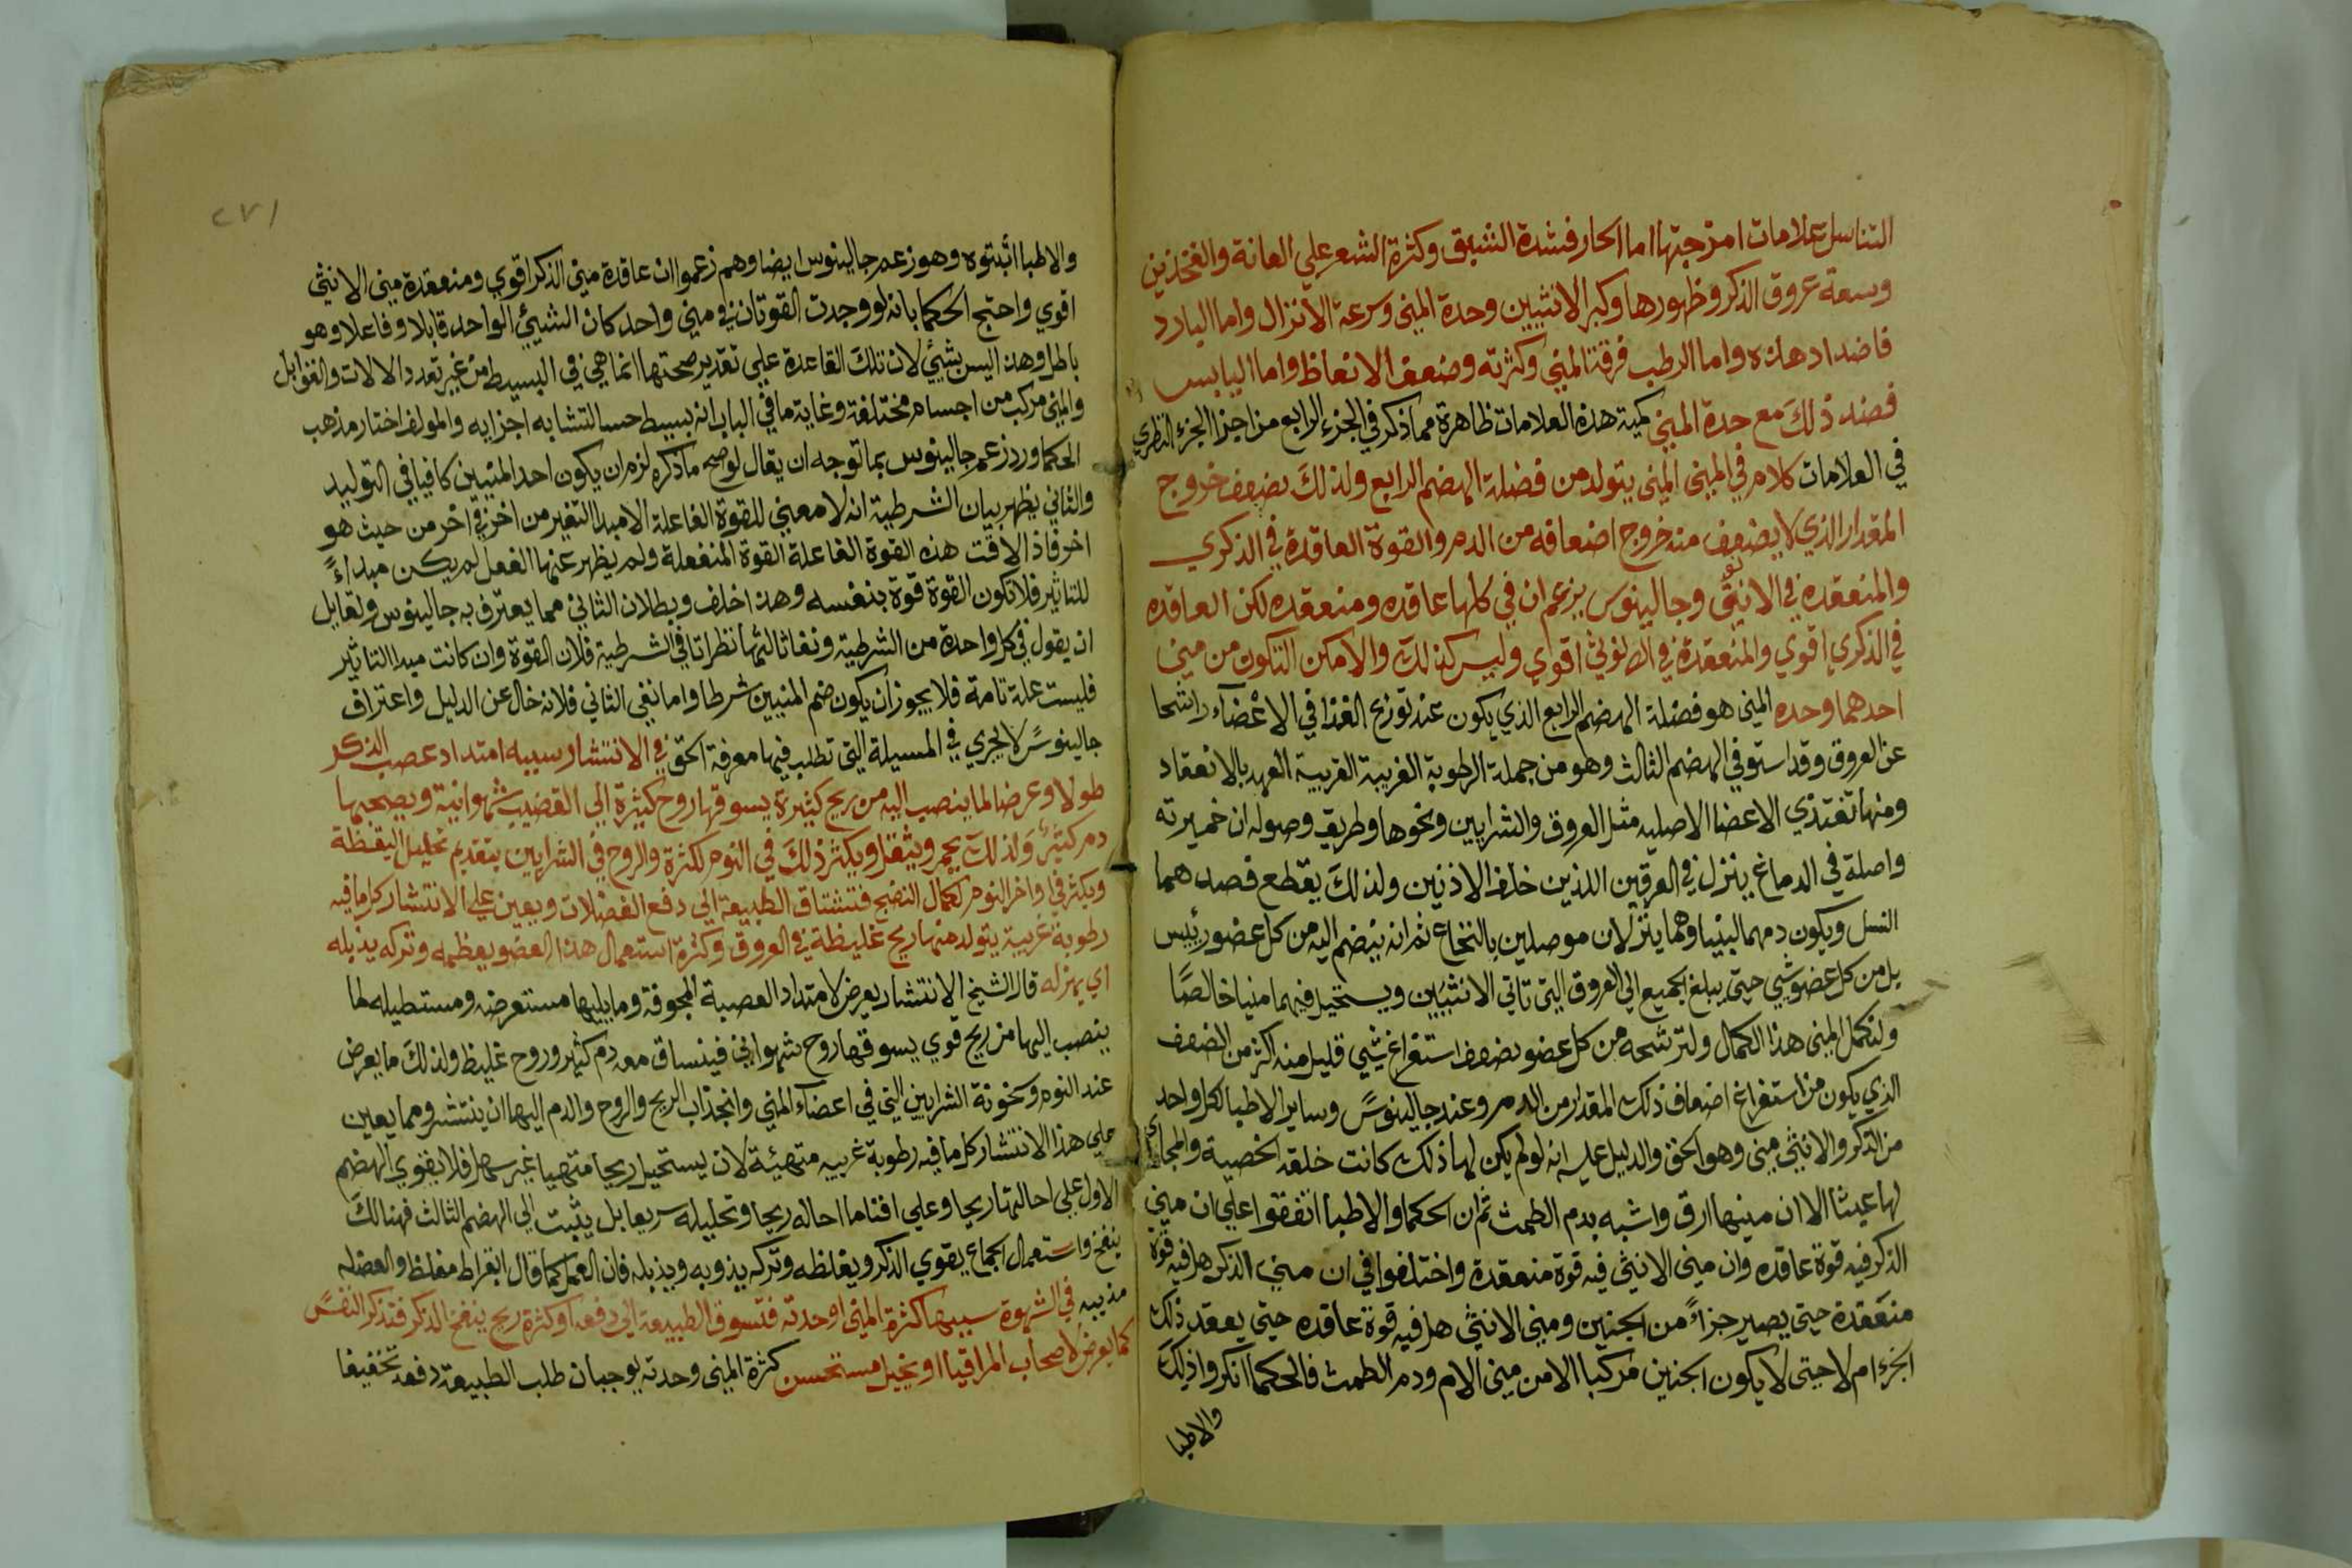 التناسل علامات امزجتها اما الحار فشدة الشبق وكثرة الشعر علي العانة والفخذين
وسعة عروق الذكر وظهورها وكبر الانثيين وحدة المني وسرعة الانزال واما البارد
فاضداد هذه واما الرطب فرقة المني وكثرته وضعف الانعاظ واما اليابس
فضد ذلك مع حدة المني كمية هذه العلامات ظاهرة مما ذكر في الجزء الرابع من اجزا الجزء النظري
في العلامات كلام في المني المني يتولد من فضلة الهضم الرابع ولذلك يضعف خروج
المقدار الذي لا يضعف منه خروج اضعافه من الدم والقوة العاقدة في الذكري
والمنعقدة في الانثي وجالينوس يزعم ان في كلها عاقده ومنعقده لكن العاقده
في الذكري اقوي والمنعقدة في الانوثي اقوي وليس كذلك والا مكن التكون من مني
احدهما وحده المني هو فضلة الهضم الرابع الذي يكون عند توزيع الغذا في الاعضآء راشحا
عن العروق وقد استوفي الهضم الثالث وهو من جملة الرطوبة الغريبة القريبة العهد بالانعقاد
ومنها تغتذي الاعضا الاصليه مثل العروق والشرايين ونحوها وطريق وصوله ان خميرته
واصلة في الدماغ ينزل في العرقين اللذين خلف الاذنين ولذلك يقطع فصدهما
النسل ويكون دمهما لبنيا وهما ينزلان موصلين بالنخاع ثم انه ينضم اليه من كل عضو رئيس
بل من كل عضو شيي حتي يبلغ الجميع الي العروق التي تاتي الانثيين ويستحيل فيهما منيا خالصًا
ولتكمل المني هذا الكمال ولترشحه من كل عضو يضعف استفراغ شيي قليل منه اكثر من الضعف
الذي يكون من استفراغ اضعاف ذلك المقدار من الدم وعند جالينوس وساير الاطبا لكل واحد
من الذكر والانثي مني وهو الحق والدليل عليه انه لو لم يكن لها ذلك كانت خلقه الخصية والمجاري
لها عبثا الا ان منيها ارق واشبه بدم الطمث ثم ان الحكما والاطبا اتفقوا علي ان مني
الذكر فيه قوة عاقده وان مني الانثي فيه قوة منعقدة واختلفوا في ان مني الذكر هل فيه قوة
منعقدة حتي يصير جزاءً من الجنين ومني الانثي هل فيه قوة عاقده حتي يعقد ذلك
الجزء ام لا حتي لا يكون الجنين مركبا الا من مني الام ودم الطمث فالحكما انكروا ذلك
والاطبا
٢٧١
والاطبا اثبتوه وهو زعم جالينوس ايضا وهم زعموا ان عاقدة مني الذكر اقوي ومنعقدة مني الانثي
اقوي واحتج الحكما بانه لو وجدت القوتان في مني واحد كان الشيئ الواحد قابلا وفاعلا وهو
باطل وهذا ليس بشيئ لان تلك القاعدة علي تقدير صحتها انما هي في البسيط من غير تعدد الالات والقوابل
والمني مركب من اجسام مختلفة وغاية ما في الباب انه بسيط حسا لتشابه اجزايه والمولف اختار مذهب
الحكما ورد زعم جالينوس بما توجه ان يقال لو صح ما ذكره لزم ان يكون احد المنيين كافيا في التوليد
والثاني يظهر بيان الشرطية انه لا معني للقوة الفاعلة الا مبدا التغير من اخر في اخر من حيث هو
اخر فاذا لاقت هذه القوة الفاعلة القوة المنفعلة ولم يظهر عنها الفعل لم يكن مبداءً
للتاثير فلا تكون القوة قوة بنفسه وهذا خلف وبطلان الثاني مما يعترف به جالينوس ولقايل
ان يقول في كل واحدة من الشرطية ونفا ثاليها نظر اتا في الشرطية فلان القوة وان كانت مبدا التاثير
فليست علة تامة فلا يجوز ان يكون ضم المنيين شرطا واما نفي الثاني فلانه خال عن الدليل واعتراف
جالينوس لا يجري في المسيلة التي تطلب فيها معرفة الحق في الانتشار سببه امتداد عصب الذكر
طولا وعرضا لما ينصب اليه من ريح كثيرة يسوقها روح كثيرة الي القضيب شهوانية ويصحبها
دم كثير ولذلك يحمر ويثقل ويكثر ذلك في النوم لكثرة والروح في الشرايين بتقديم تحليل اليقظة
ويكثر في اواخر النوم لكمال النضج فتشتاق الطبيعة الي دفع الفضلات ويعين علي الانتشار كل ما فيه
رطوبة غريبة يتولد منها ريح غليظة في العروق وكثرة استعمال هذا العضو يعظمه وتركه يذبله
اي يهزله قال الشيخ الانتشار يعرض لامتداد العصبة المجوفة وما يليها مستعرضه ومستطيله لما
ينصب اليها من ريح قوي يسوقها روح شهواني فينساق معه دم كثير وروح غليظ ولذلك ما يعرض
عند النوم وسخونة الشرايين التي في اعضآء المني وانجذاب الريح والروح والدم اليها ان ينتشر ومما يعين
علي هذا الانتشار كل ما فيه رطوبة غريبه متهيئة لان يستحيل ريحا متهيا غير سهل فلا يقوي الهضم
الاول علي احالتها ريحا وعلي افنا ما احاله ريحا وتحليله سريعا بل يثبت الي الهضم الثالث فهنالك
ينفخ واستعمال الجماع يقوي الذكر ويغلظه وتركه يذوبه ويذبله فان العمل كما قال ابقراط مغلظ والعضله
مذيبه في الشهوة سببها كثرة المني او حدته فتسوق الطبيعة الي دفعه او كثرة ريح ينفخ الذكر فتذكر النفس
كما يعرض لاصحاب المراقيا او تخيل مستحسن كثرة المني وحدته يوجبان طلب الطبيعة دفعه تخفيفا